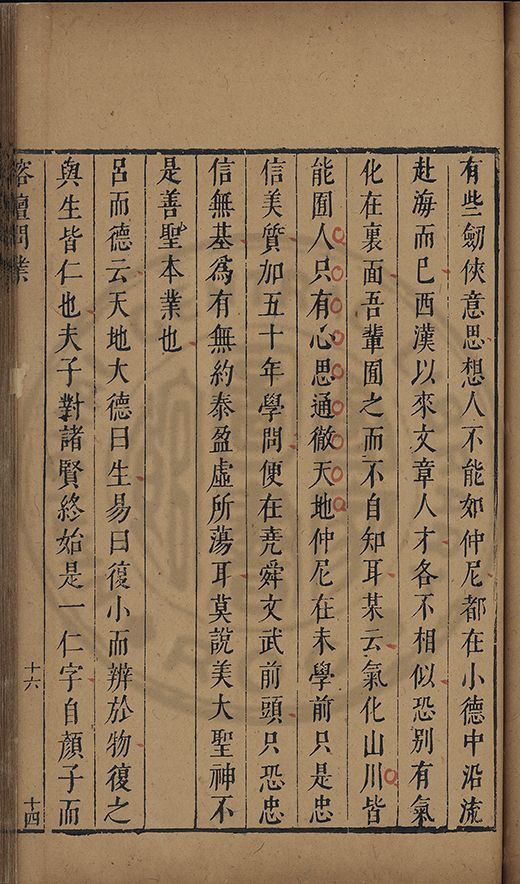 有些劒俠意思想人不能如仲尼都在小德中沿流
赴海而已西漢以來文章人才各不相似恐別有氣
化在裏面吾輩囿之而不自知耳某云氣化山川皆
能囿人只有心思通徹天地仲尼在未學前只是忠
信美質加五十年學問便在堯舜文武前頭只恐忠
信無基為有無約泰盈虛所蕩耳莫說美大聖神不
是善聖本業也
呂而德云天地大德曰生易曰復小而辨於物復之
與生皆仁也夫子對諸賢終始是一仁字自顏子而
榕壇問業
十六
十四